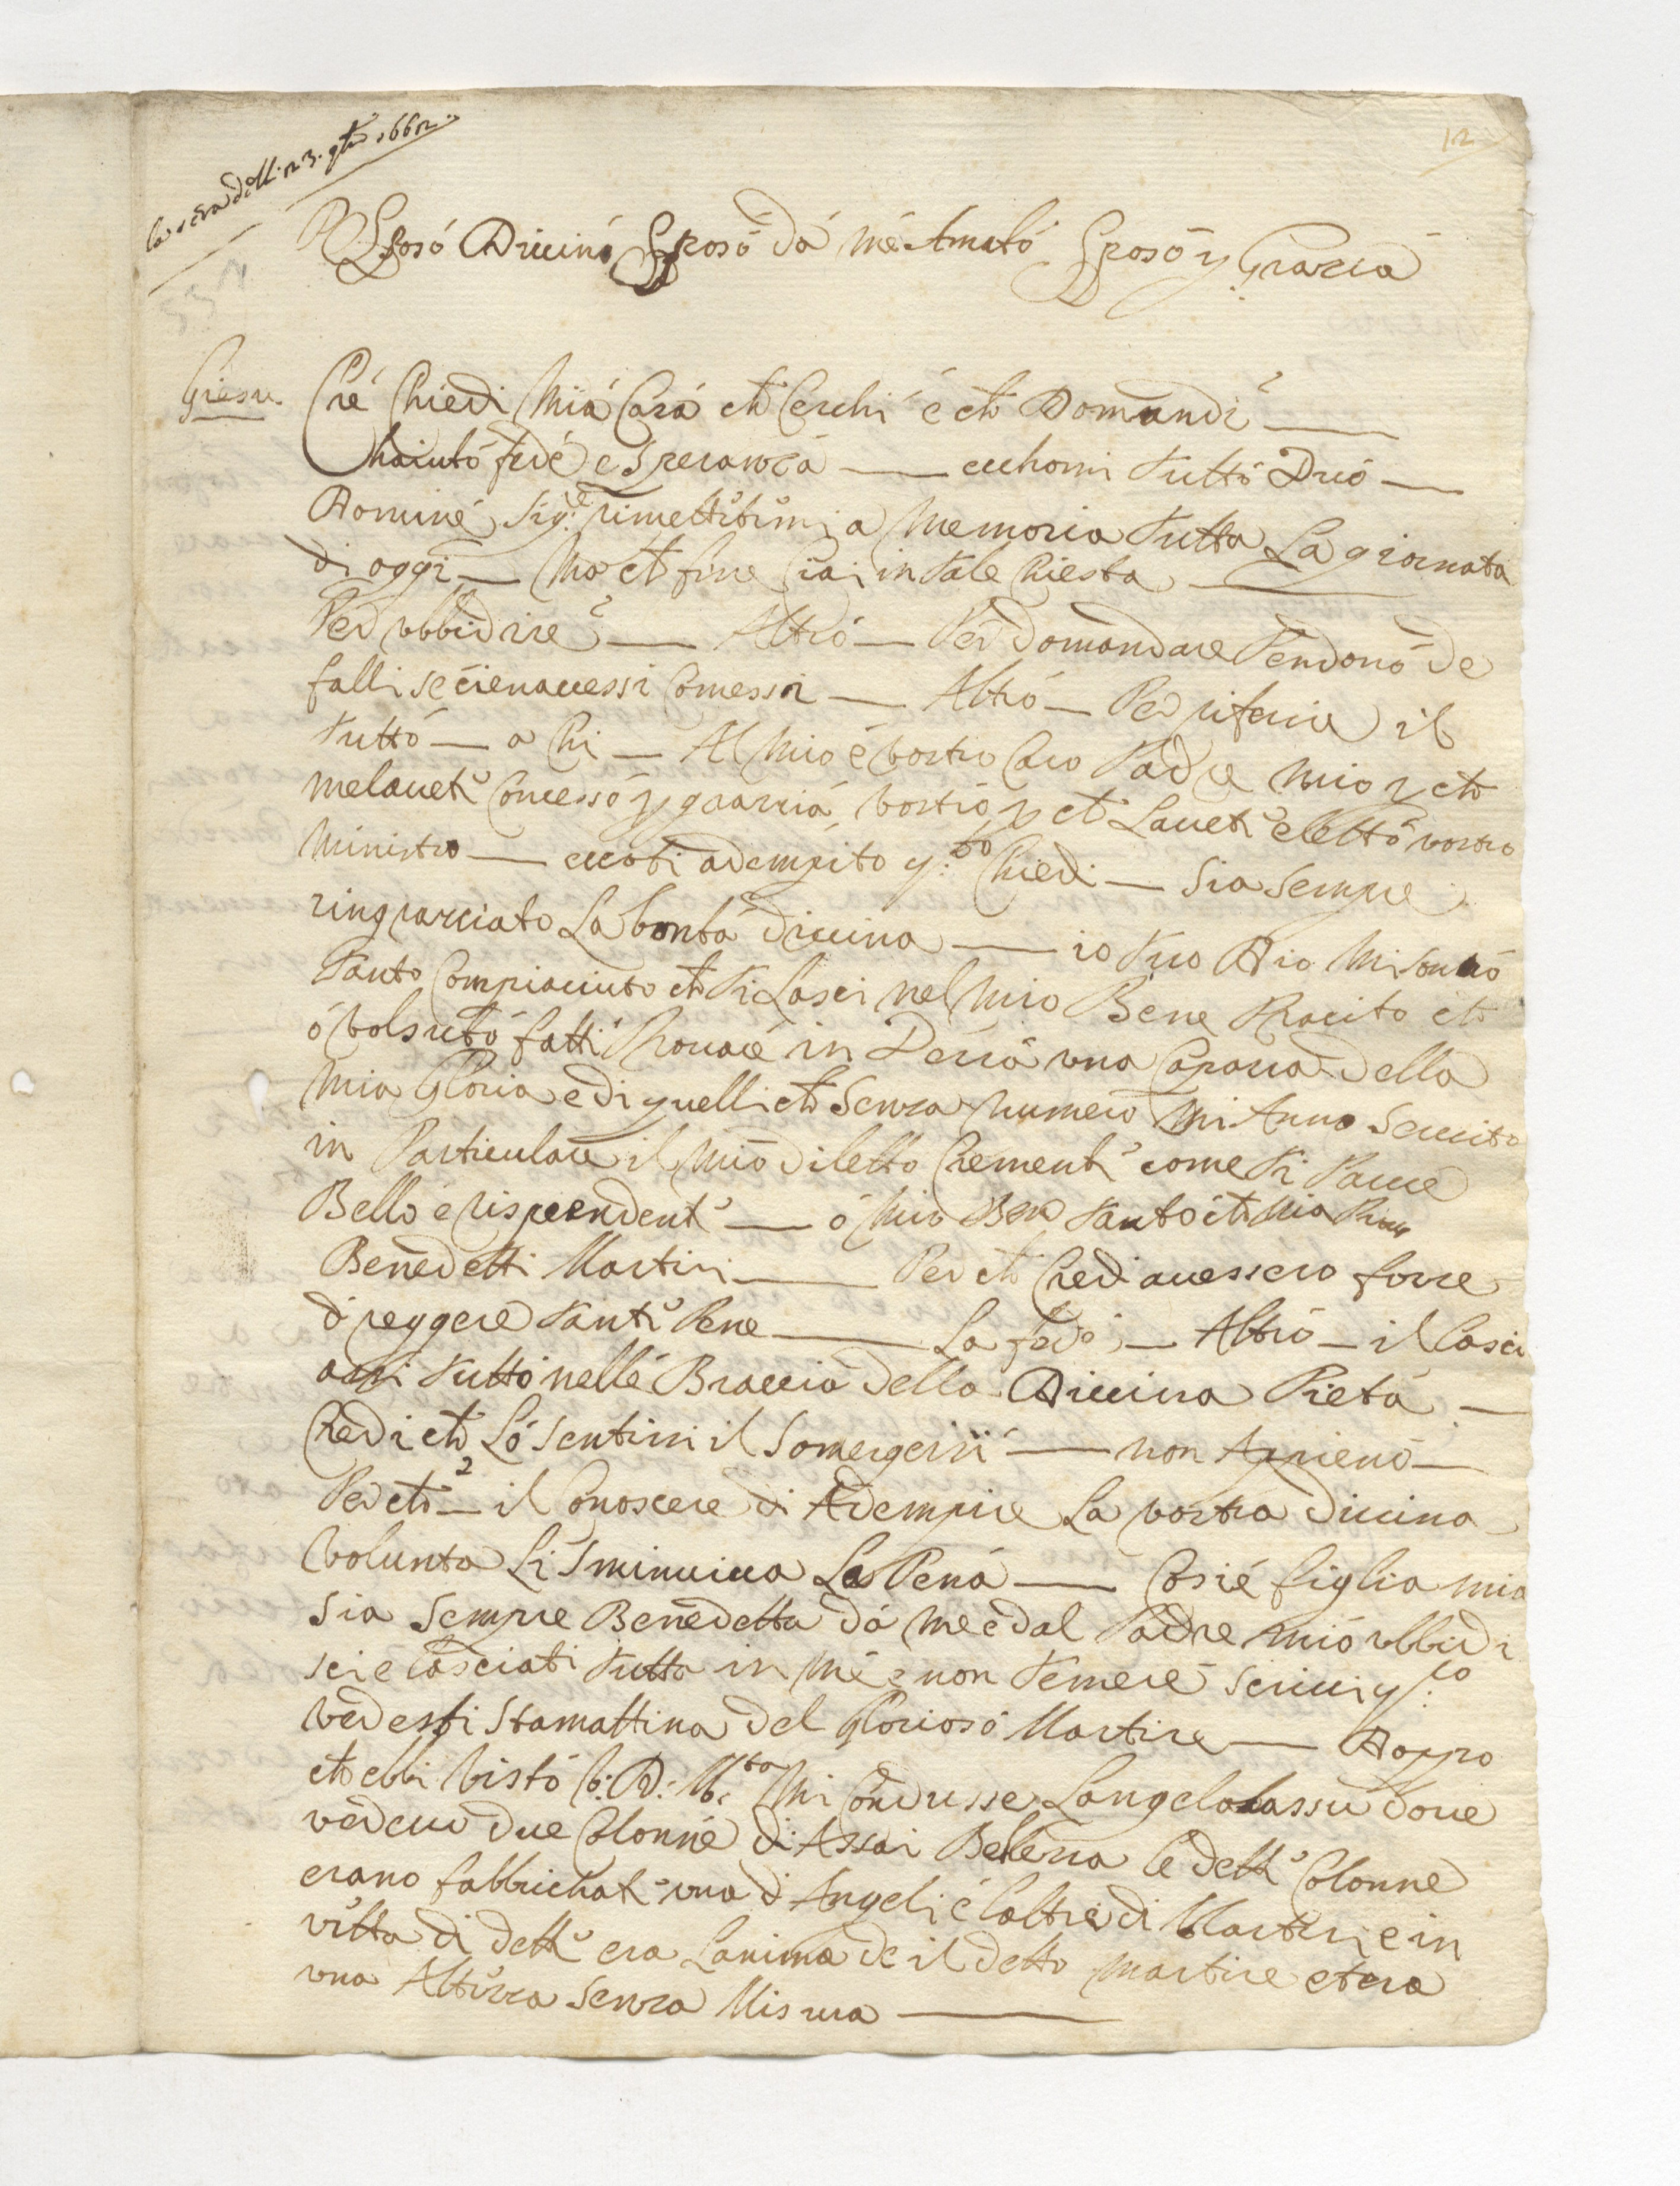 la sera delli 23. 9bre 1662.
12
Sposó Diuinó Sposó dá mé Amató Sposó p Grazia
Giesu. Ché Chiedi Miá Cará ch Cerchi é ch Domandi
haiutó fedé e Speranzá — ecchomi tuttó Dió —
Domine Sig.re rimettitimi a Memoria tutta La giornata
di oggi — Ma ch fine ciai in tale Chiesta —
Per vbbidire — Altró — Per domandare Perdonó de
falli se cienauessi Comessi — Altró — Per riferire il
tuttó — a Chi — Al Mio é vostro Caro Padre mio p ch
melaueti Concessó p graazziá vostró p ch Laueti elettó vostro
Ministro — eccoti adempito q.to Chiedi — Sia Sempre
ringrazziato La bontá diuina — io tuo Dio Mi sonnó
tanto Compiaciuto ch ti Lasci nel Mio Bene Placito ch
ó volsutó fatti Prouaré in Terrá vna Caparra della
Mia Gloria e di quelli ch Senza numero Mi Anno Seruito
in Particulare il Mió diletto Clementi come ti Parue
Belló é risprendenti — ó Mio Bene tantó ch Mia
Benedetti Martiri — Per ch Credi auessero forze
di reggere tanti Pene — La fede — Altró — il Lasci
arsi tutti nellé Braccia della Diuina Pietá —
Credi ch Ló sentirsi il Somergersi — non Appienó —
Per ch — il Conoscere di Adempire La vostra diuina
Volunta Li Sminuiua La Pená — Cosié figlia mia
Sia Sempre Benedetta dá Me e dal Padre mió vbbidi
sci e Lasciati tutta in Mé e non temere Seriui q.to
Vedesti Stamattina del Gloriosó Martire — Doppo
ch ebbi Vistó V. D. M.ta Mi Condusse Langelo Lassu doue
vedeuo due Colonné di Assai Bellezza Le detti Colonne
erano fabbrichati vna di Angeli é Laltra di Martiri e in
vitta di detti era Lanima de il detto martire ch era
vna Altizza Senza Misura —